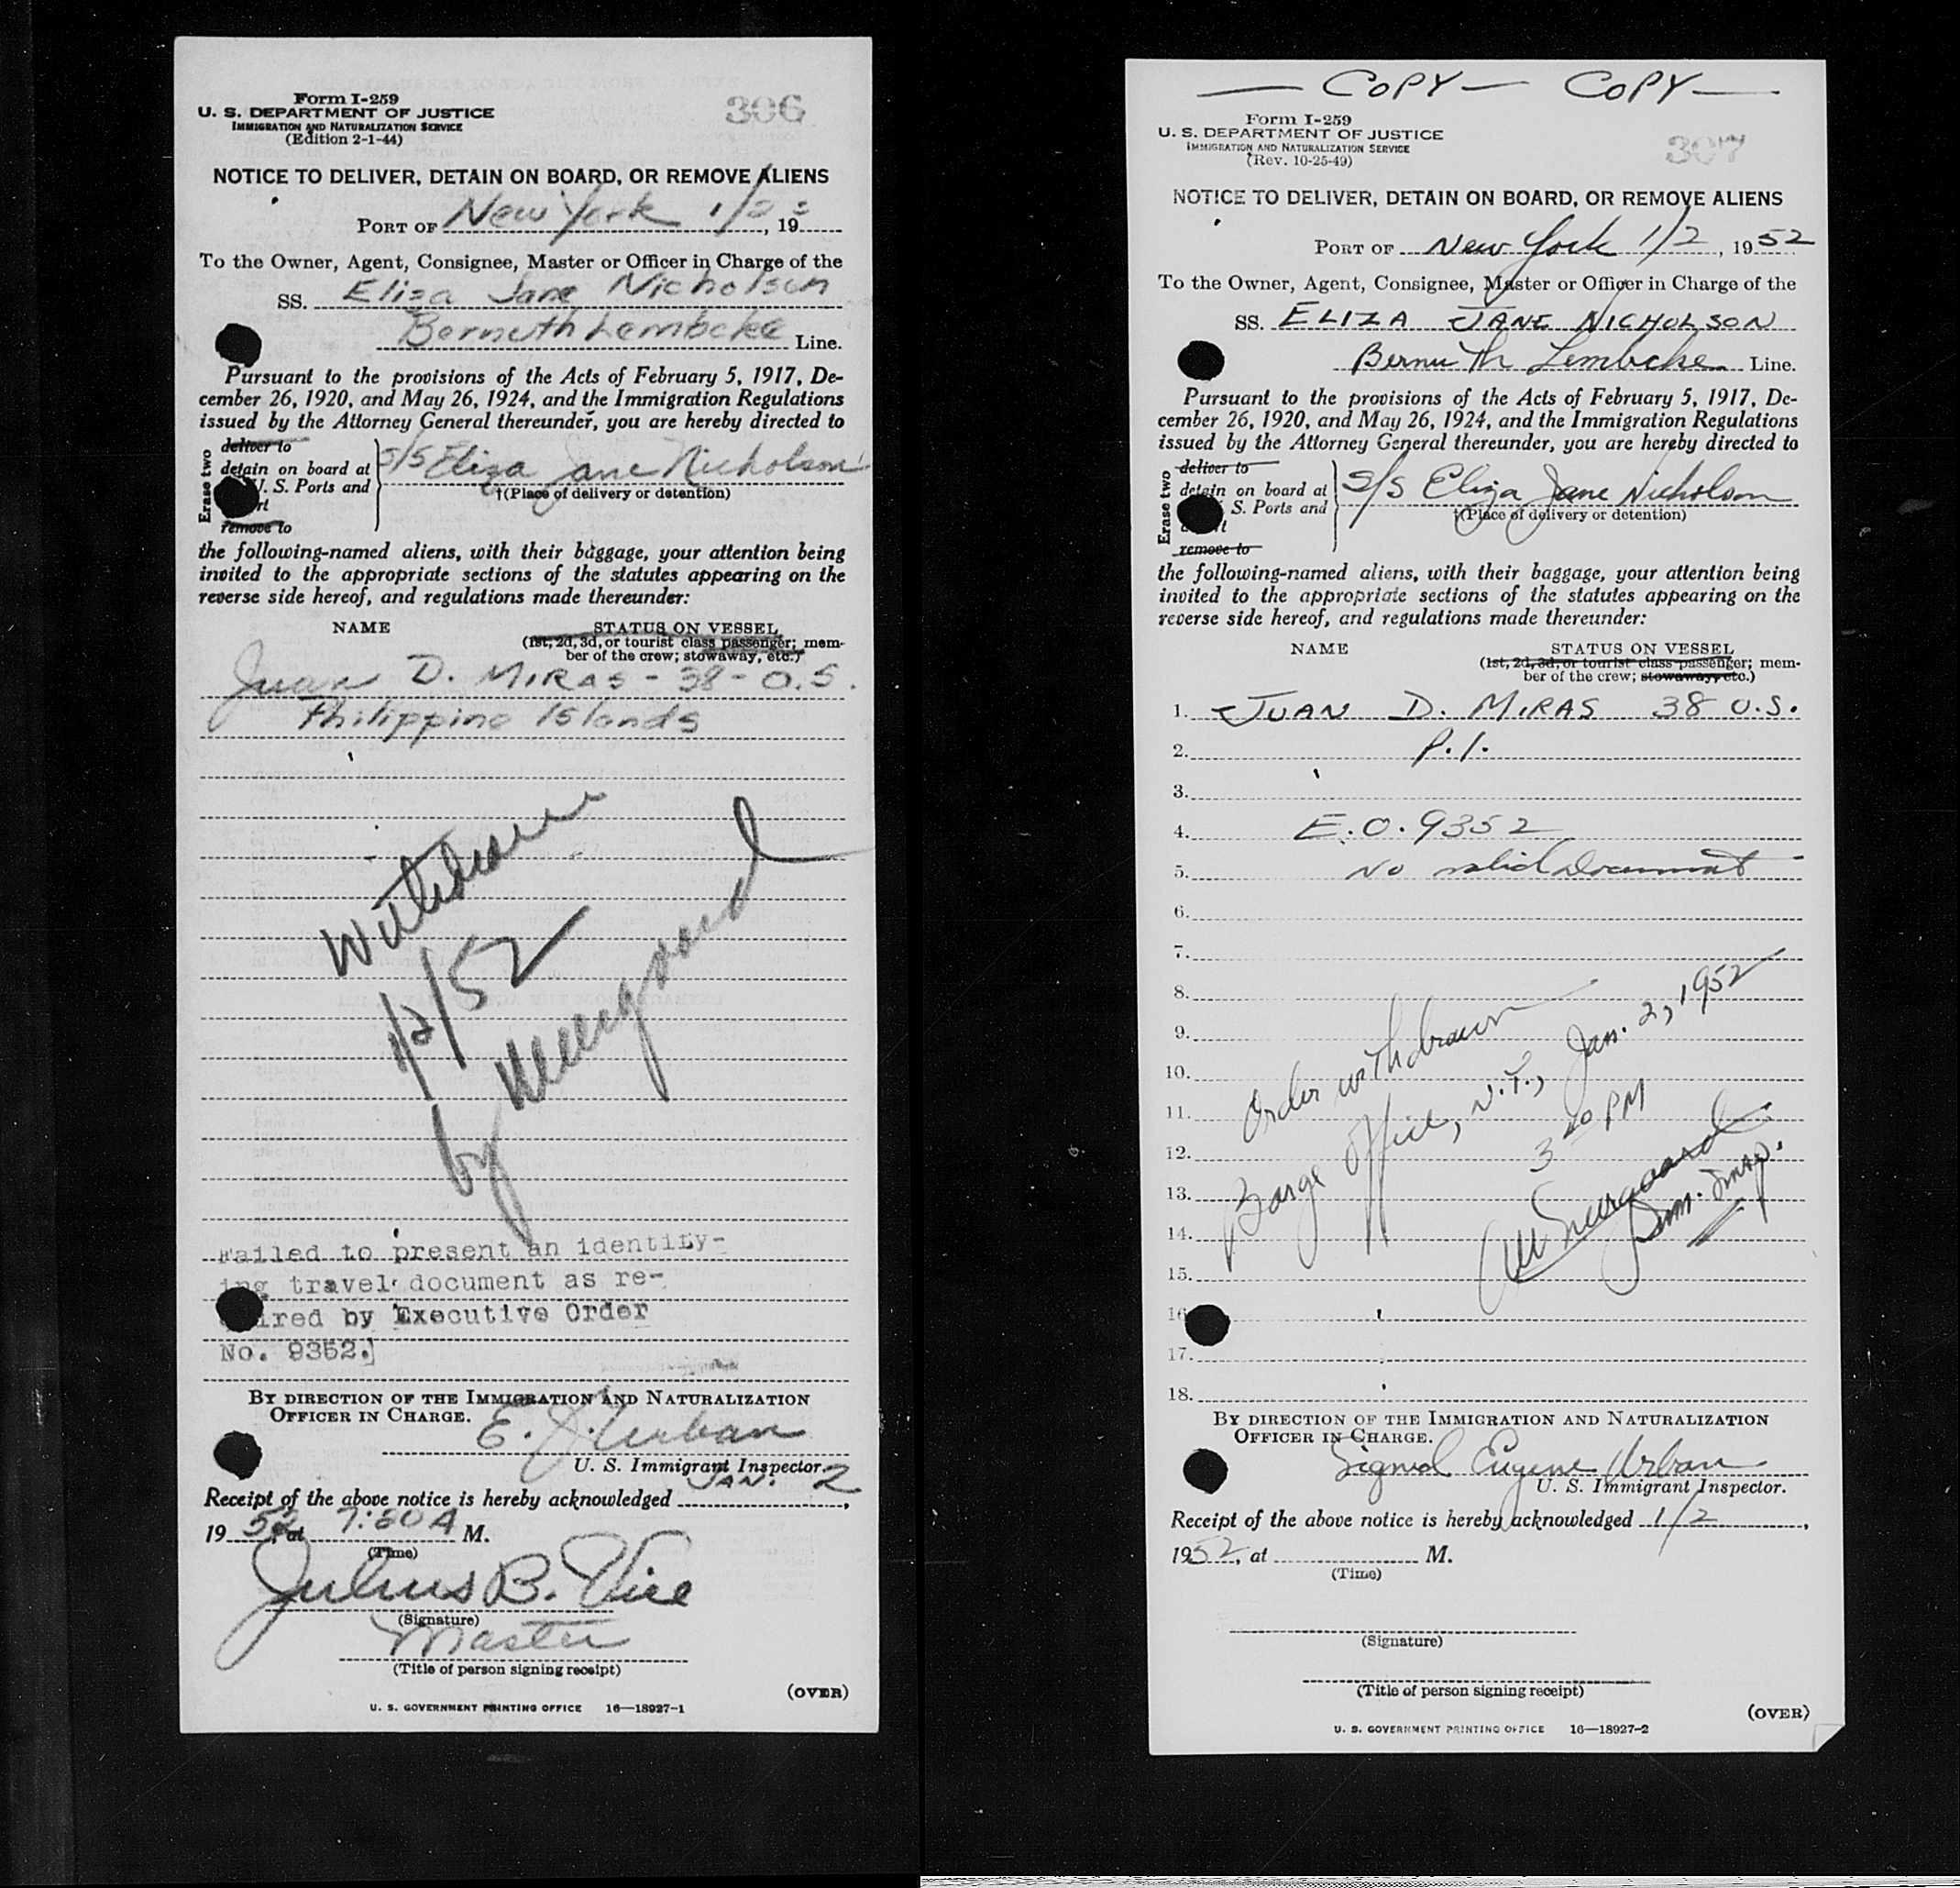 Form I-259
U. S. DEPARTMENT OF JUSTICE
IMMIGRATION AND NATURALIZATION SERVICE
(Edition 2-1-44)
306
NOTICE TO DELIVER, DETAIN ON BOARD, OR REMOVE ALIENS
PORT OF New York 1/2, 19
To the Owner, Agent, Consignee, Master or Officer in Charge of the
SS. Eliza Jane Nicholson
Bernuth Lembcke Line.
Pursuant to the provisions of the Acts of February 5, 1917, De-
cember 26, 1920, and May 26, 1924, and the Immigration Regulations
issued by the Attorney General thereunder, you are hereby directed to
Erase two
deliver to
detain on board at
U. S. Ports and
remove to
S/S Eliza Jane Nicholson
†(Place of delivery or detention)
the following-named aliens, with their baggage, your attention being
invited to the appropriate sections of the statutes appearing on the
reverse side hereof, and regulations made thereunder:
NAME STATUS ON VESSEL
(1st, 2d, 3d, or tourist class passenger; mem-
ber of the crew; stowaway, etc.)
Juan D. MIRAS - 38 - O.S.
Philippine Islands
Withdrawn
1/2/52
by
Failed to present an identify-
ing travel document as re-
ired by Executive Order
No. 9352.
BY DIRECTION OF THE IMMIGRATION AND NATURALIZATION
OFFICER IN CHARGE.
E. J. Urban
U. S. Immigrant Inspector.
Receipt of the above notice is hereby acknowledged JAN. 2,
1952, at 7:30 A M.
(Time)
Julius B. Vice
(Signature)
Master
(Title of person signing receipt)
(OVER)
U. S. GOVERNMENT PRINTING OFFICE 16—18927-1
— COPY — COPY —
Form I-259
U. S. DEPARTMENT OF JUSTICE
IMMIGRATION AND NATURALIZATION SERVICE
(Rev. 10-25-49)
307
NOTICE TO DELIVER, DETAIN ON BOARD, OR REMOVE ALIENS
PORT OF New York 1/2, 1952
To the Owner, Agent, Consignee, Master or Officer in Charge of the
SS. ELIZA JANE NICHOLSON
Bernuth Lembcke Line.
Pursuant to the provisions of the Acts of February 5, 1917, De-
cember 26, 1920, and May 26, 1924, and the Immigration Regulations
issued by the Attorney General thereunder, you are hereby directed to
Erase two
deliver to
detain on board at
S. Ports and
remove to
S/S Eliza Jane Nicholson
†(Place of delivery or detention)
the following-named aliens, with their baggage, your attention being
invited to the appropriate sections of the statutes appearing on the
reverse side hereof, and regulations made thereunder:
NAME STATUS ON VESSEL
(1st, 2d, 3d, or tourist class passenger; mem-
ber of the crew; stowaway, etc.)
1. JUAN D. MIRAS 38 O.S.
2. P.I.
3.
4. E.O. 9352
5. No valid Document
6.
7.
8.
9.
10.
11.
12.
13.
14.
15.
16
17.
18.
Order withdrawn
Barge Office, N.Y., Jan. 2, 1952
3 20 PM
Imm. Insp.
BY DIRECTION OF THE IMMIGRATION AND NATURALIZATION
OFFICER IN CHARGE.
Signed Eugene Urban
U. S. Immigrant Inspector.
Receipt of the above notice is hereby acknowledged 1/2,
1952, at M.
(Time)
(Signature)
(Title of person signing receipt)
(OVER)
U. S. GOVERNMENT PRINTING OFFICE 16—18927-2